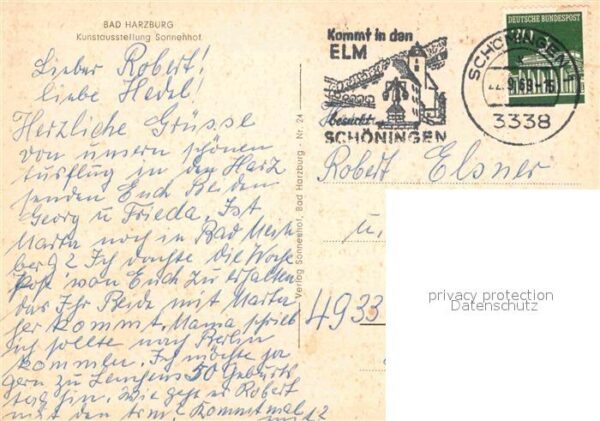 BAD HARZBURG
Kunstausstellung Sonnenhof
Lieber Robert!
liebe Hedel!
Herzliche Grüsse
von unsern schönen
Ausflug in den Harz
senden Euch Beiden
Georg u Frieda. Ist
Marta noch in Bad Mein
berg? Ich dachte die Woche
Post von Euch zu erhalten
das Ihr Beide mit Marta
her kommt. Mama schrieb
ich sollte nach Berlin
kommen. Ich möchte ja
gern zu 50 Geburts
tag hin. Wie geht es Robert
mit den Kommt mal
Verlag Sonnenhof, Bad Harzburg - Nr. 24
Kommt in den
ELM
besucht
SCHÖNINGEN
SCHÖNINGEN 1
22.9.69-16
3338
DEUTSCHE BUNDESPOST
Robert Elsner
u.
4933
privacy protection
Datenschutz